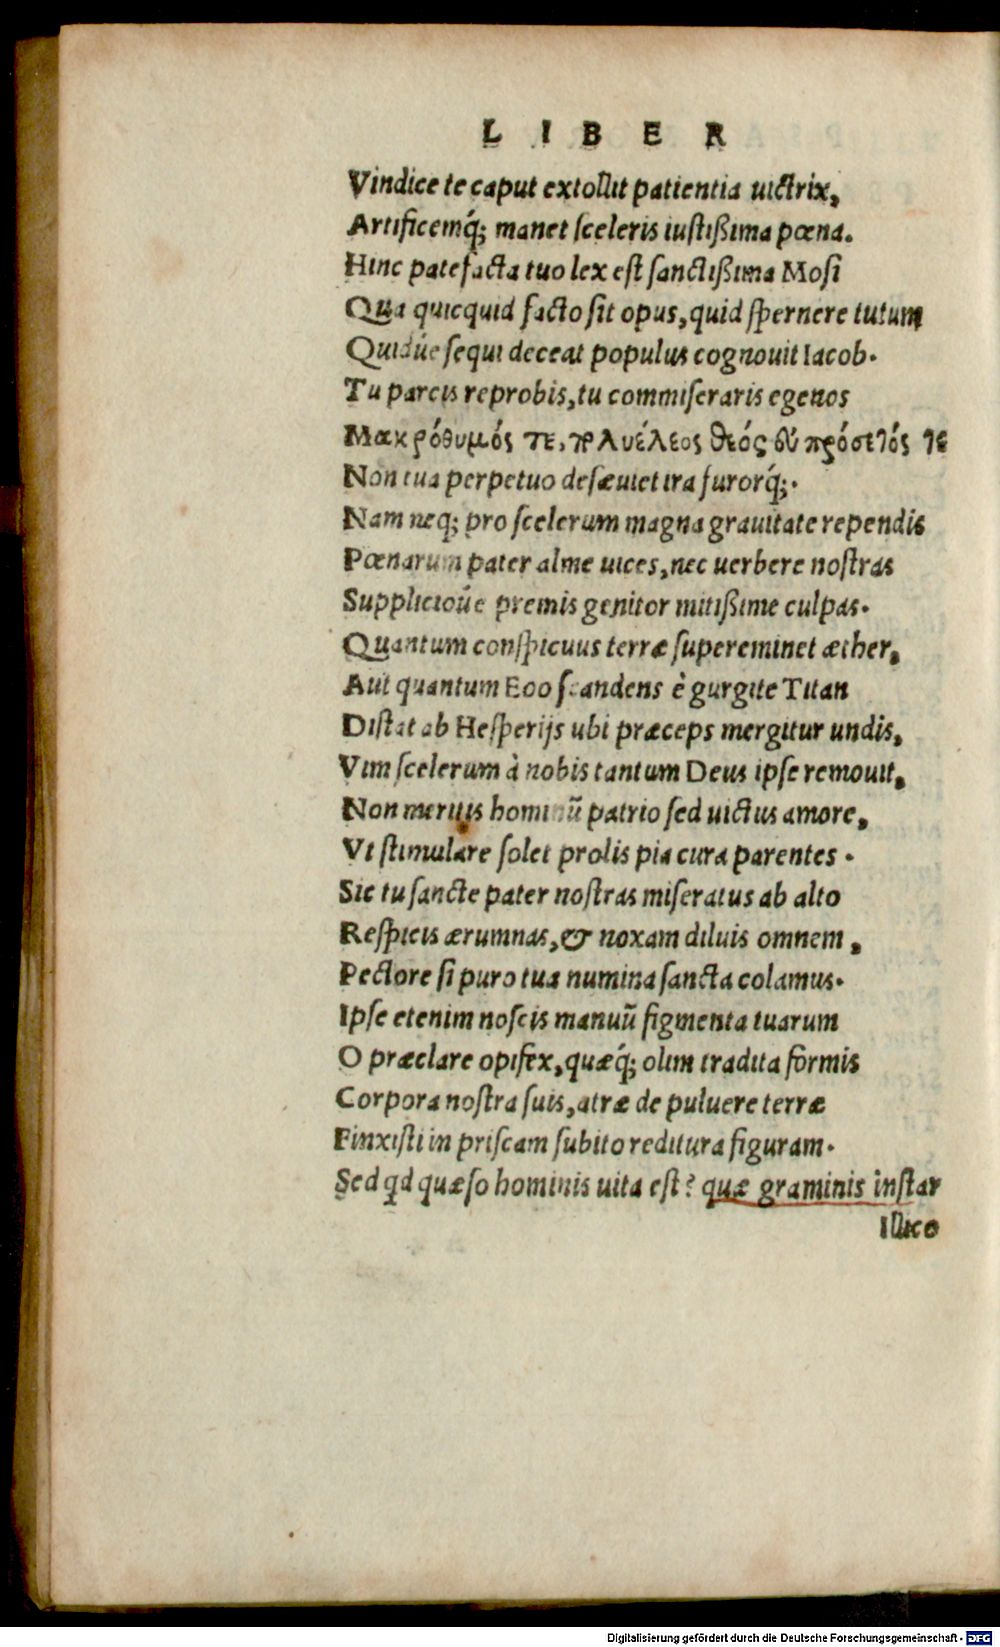 LIBER
Vindice te caput extollit patientia uictrix,
Artificemq́; manet sceleris iustißima pœna.
Hinc patefacta tuo lex est sanctißima Mosi
Qua quicquid facto sit opus, quid spernere tutum
Quidúe sequi deceat populus cognouit Iacob.
Tu parcis reprobis, tu commiseraris egenos
Μακρόθυμός τε, πολυέλεος θεός
Non tua perpetuo desæuiet ira furorq́;.
Nam neq; pro scelerum magna grauitate rependis
Pœnarum pater alme uices, nec uerbere nostras
Supplicioúe premis genitor mitißime culpas.
Quantum conspicuus terræ supereminet æther,
Aut quantum Eoo scandens è gurgite Titan
Distat ab Hesperijs ubi præceps mergitur undis,
Vim scelerum à nobis tantum Deus ipse remouit,
Non meritis hominū patrio sed uictus amore,
Vt stimulare solet prolis pia cura parentes.
Sic tu sancte pater nostras miseratus ab alto
Respicis ærumnas, & noxam diluis omnem,
Pectore si puro tua numina sancta colamus.
Ipse etenim noscis manuū figmenta tuarum
O præclare opifex, quæq́; olim tradita formis
Corpora nostra suis, atræ de puluere terræ
Finxisti in priscam subito reditura figuram.
Sed qd quæso hominis uita est? quæ graminis instar
Illico
Digitalisierung gefördert durch die Deutsche Forschungsgemeinschaft - DFG